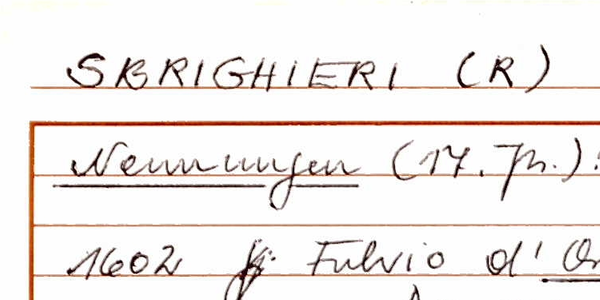 SBRIGHIERI (R)
Nennungen (17. Jh.):
1602 Fulvio d'